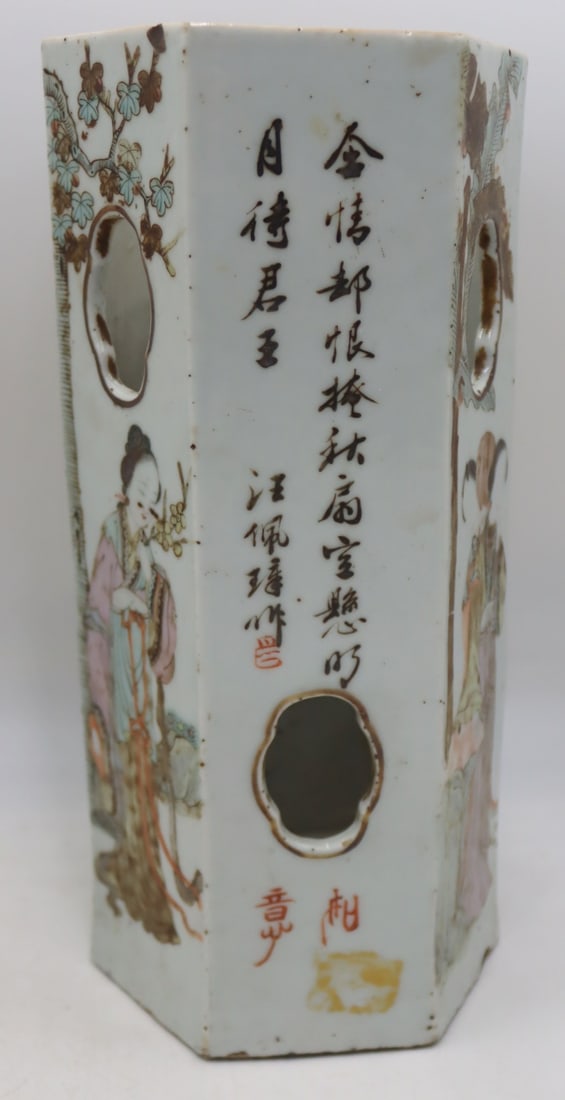 含情却恨掩秋扇空懸明
月待君王
汪佩璋作